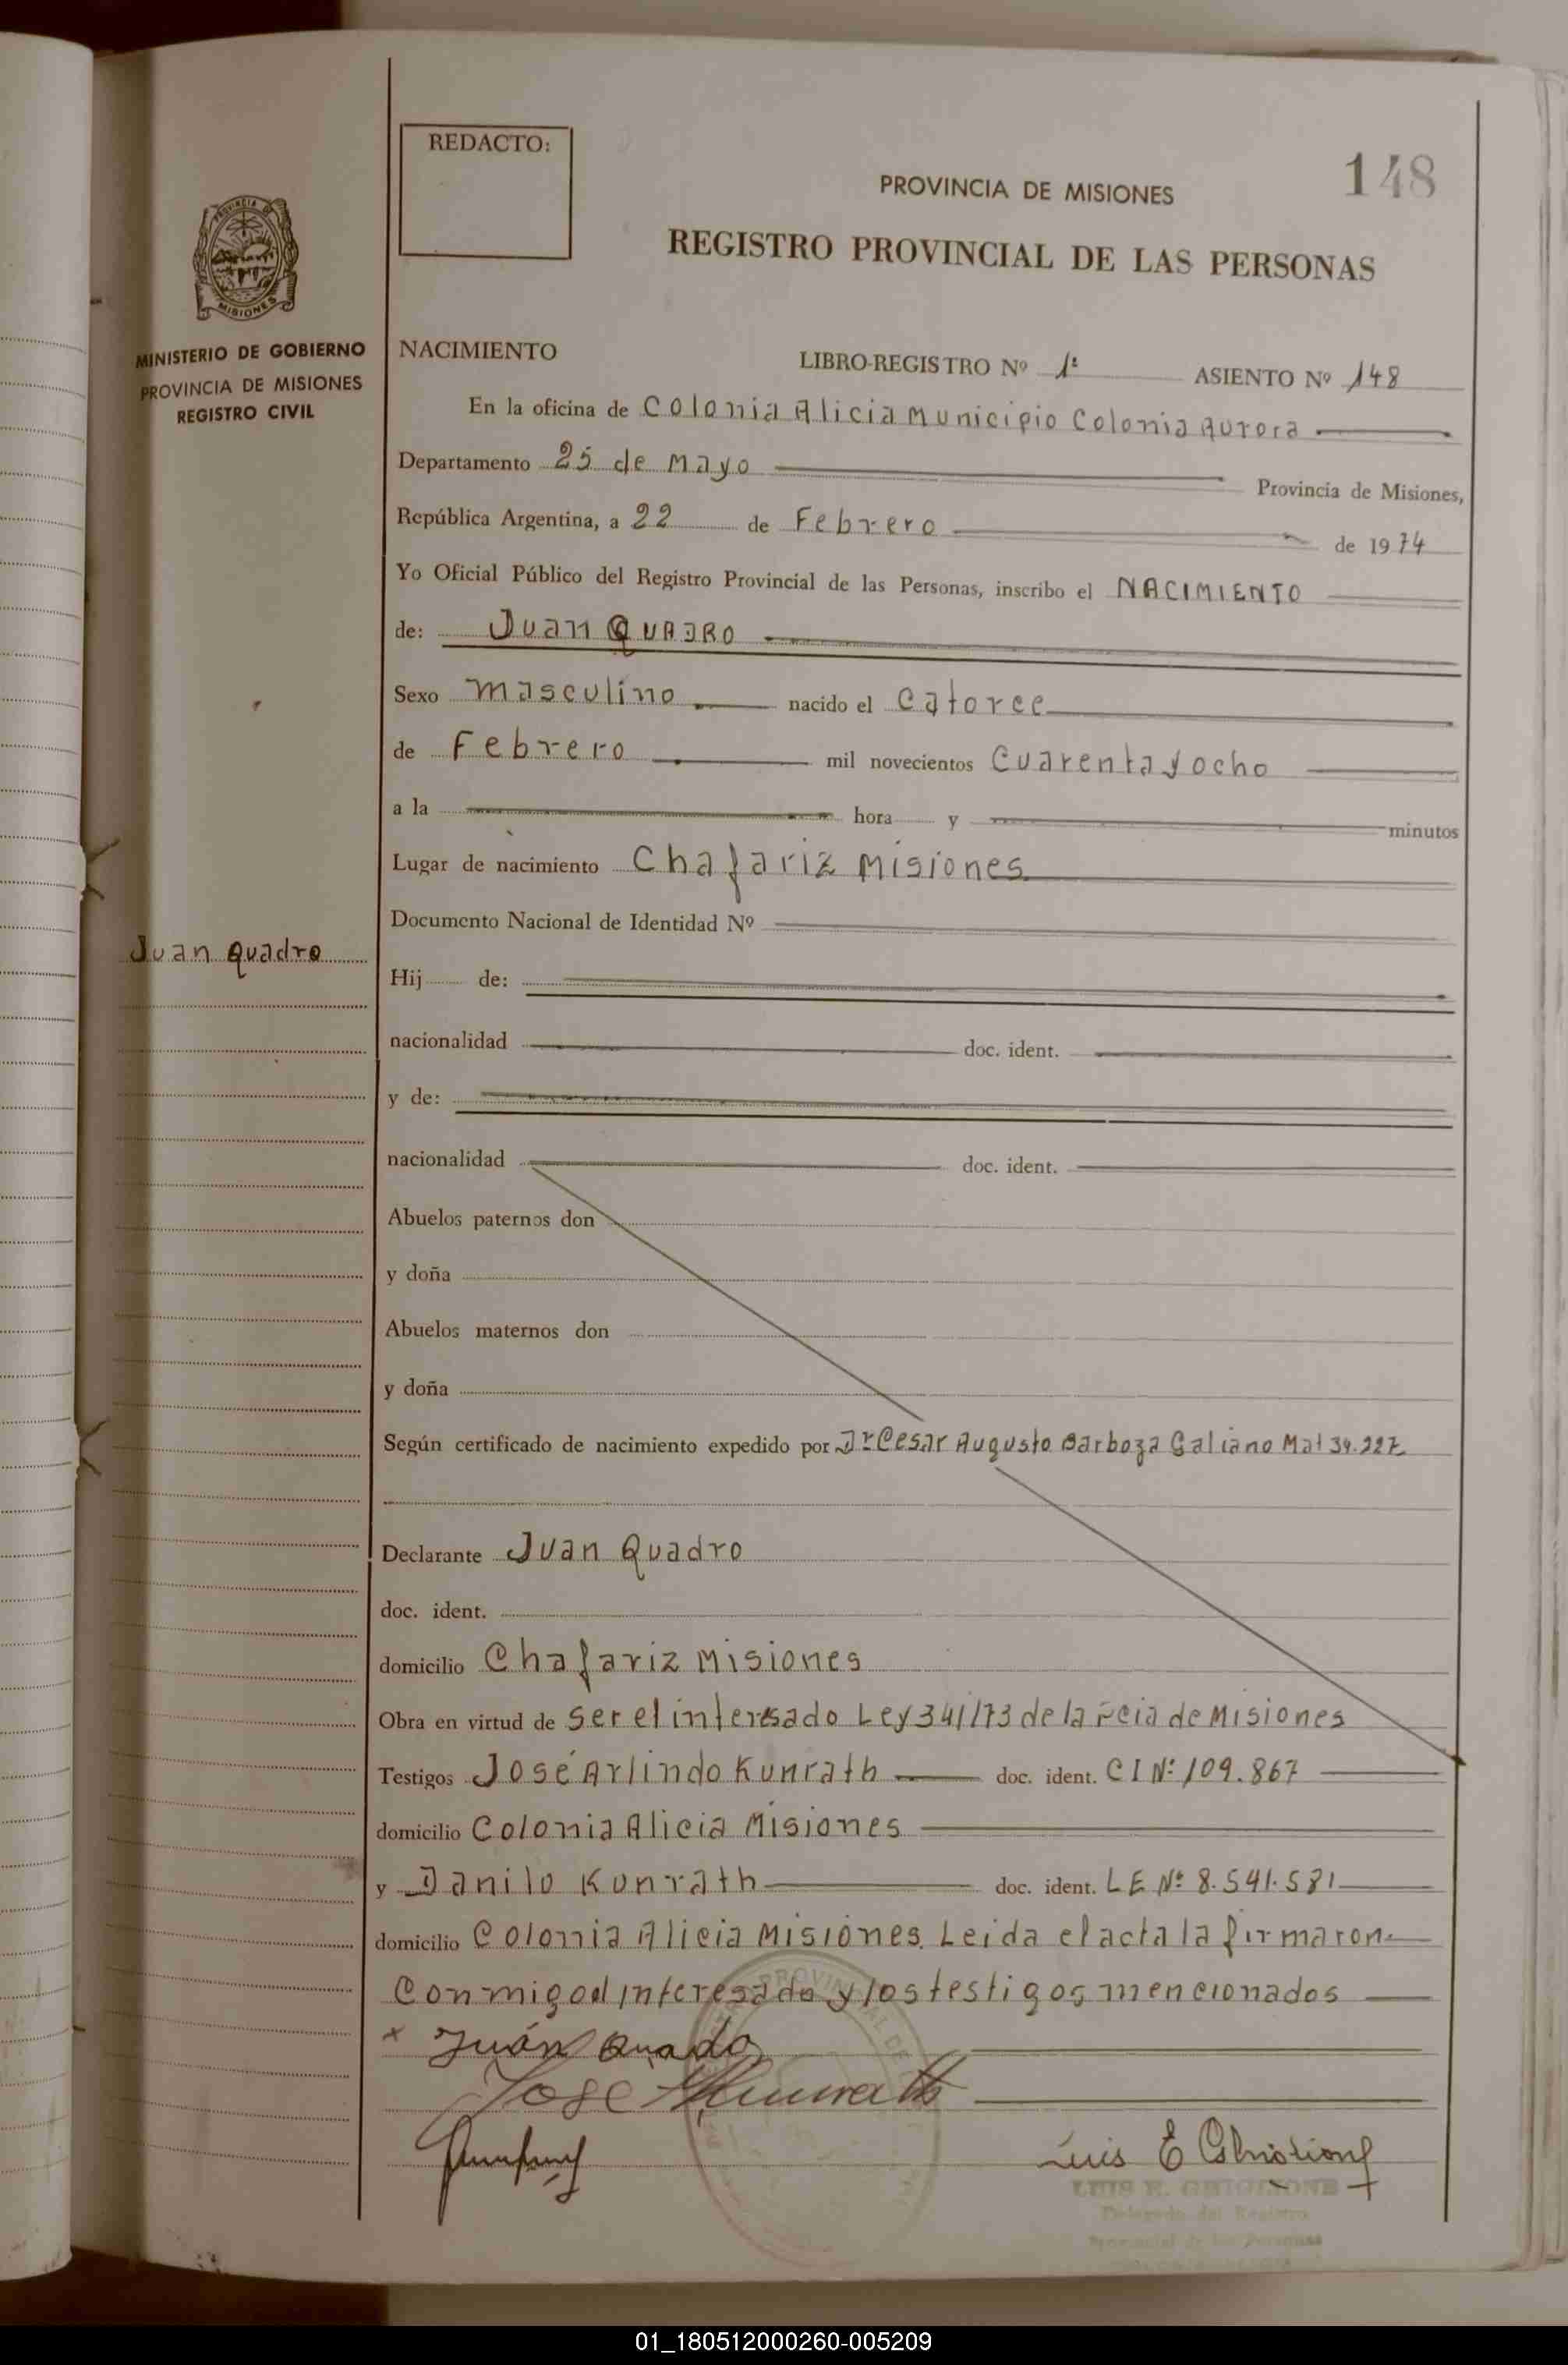 REDACTO:
148
PROVINCIA DE MISIONES
REGISTRO PROVINCIAL DE LAS PERSONAS
PROVINCIA DE
MISIONES
MINISTERIO DE GOBIERNO
PROVINCIA DE MISIONES
REGISTRO CIVIL
NACIMIENTO LIBRO-REGISTRO Nº 1º ASIENTO Nº 148
En la oficina de Colonia Alicia Municipio Colonia Aurora
Departamento 25 de Mayo Provincia de Misiones,
República Argentina, a 22 de Febrero de 1974
Yo Oficial Público del Registro Provincial de las Personas, inscribo el NACIMIENTO
de: Juan QUADRO
Sexo masculino nacido el Catorce
de Febrero mil novecientos Cuarenta y ocho
a la hora y minutos
Lugar de nacimiento Chafariz Misiones
Documento Nacional de Identidad Nº
Juan Quadro
Hij de:
nacionalidad doc. ident.
y de:
nacionalidad doc. ident.
Abuelos paternos don
y doña
Abuelos maternos don
y doña
Según certificado de nacimiento expedido por Dr Cesar Augusto Barboza Galiano Mat 34.227
Declarante Juan Quadro
doc. ident.
domicilio Chafariz Misiones
Obra en virtud de ser el interesado Ley 341/73 de la Pcia de Misiones
Testigos José Arlindo Kunrath doc. ident. CI Nº 109.867
domicilio Colonia Alicia Misiones
y Danilo Kunrath doc. ident. LE Nº 8.541.581
domicilio Colonia Alicia Misiones. Leida el acta la firmaron
Conmigo el interesado y los testigos mencionados
x Juán Quado
José A Kunrath
Luis E Ghiglione
LUIS E. GHIGLIONE
Delegado del Registro
Provincial de las Personas
01_180512000260-005209